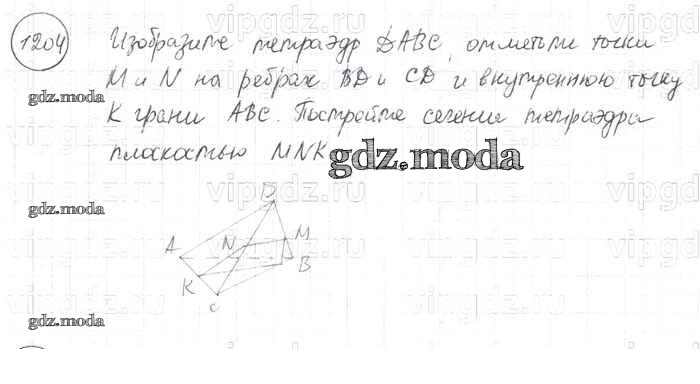 1204
Изобразите тетраэдр DABC, отметьте точки
M и N на ребрах BD и CD и внутреннюю точку
K грани ABC. Постройте сечение тетраэдра
плоскостью MNK
gdz.moda
gdz.moda
gdz.moda
gdz.moda
D
A N M
B
K
C